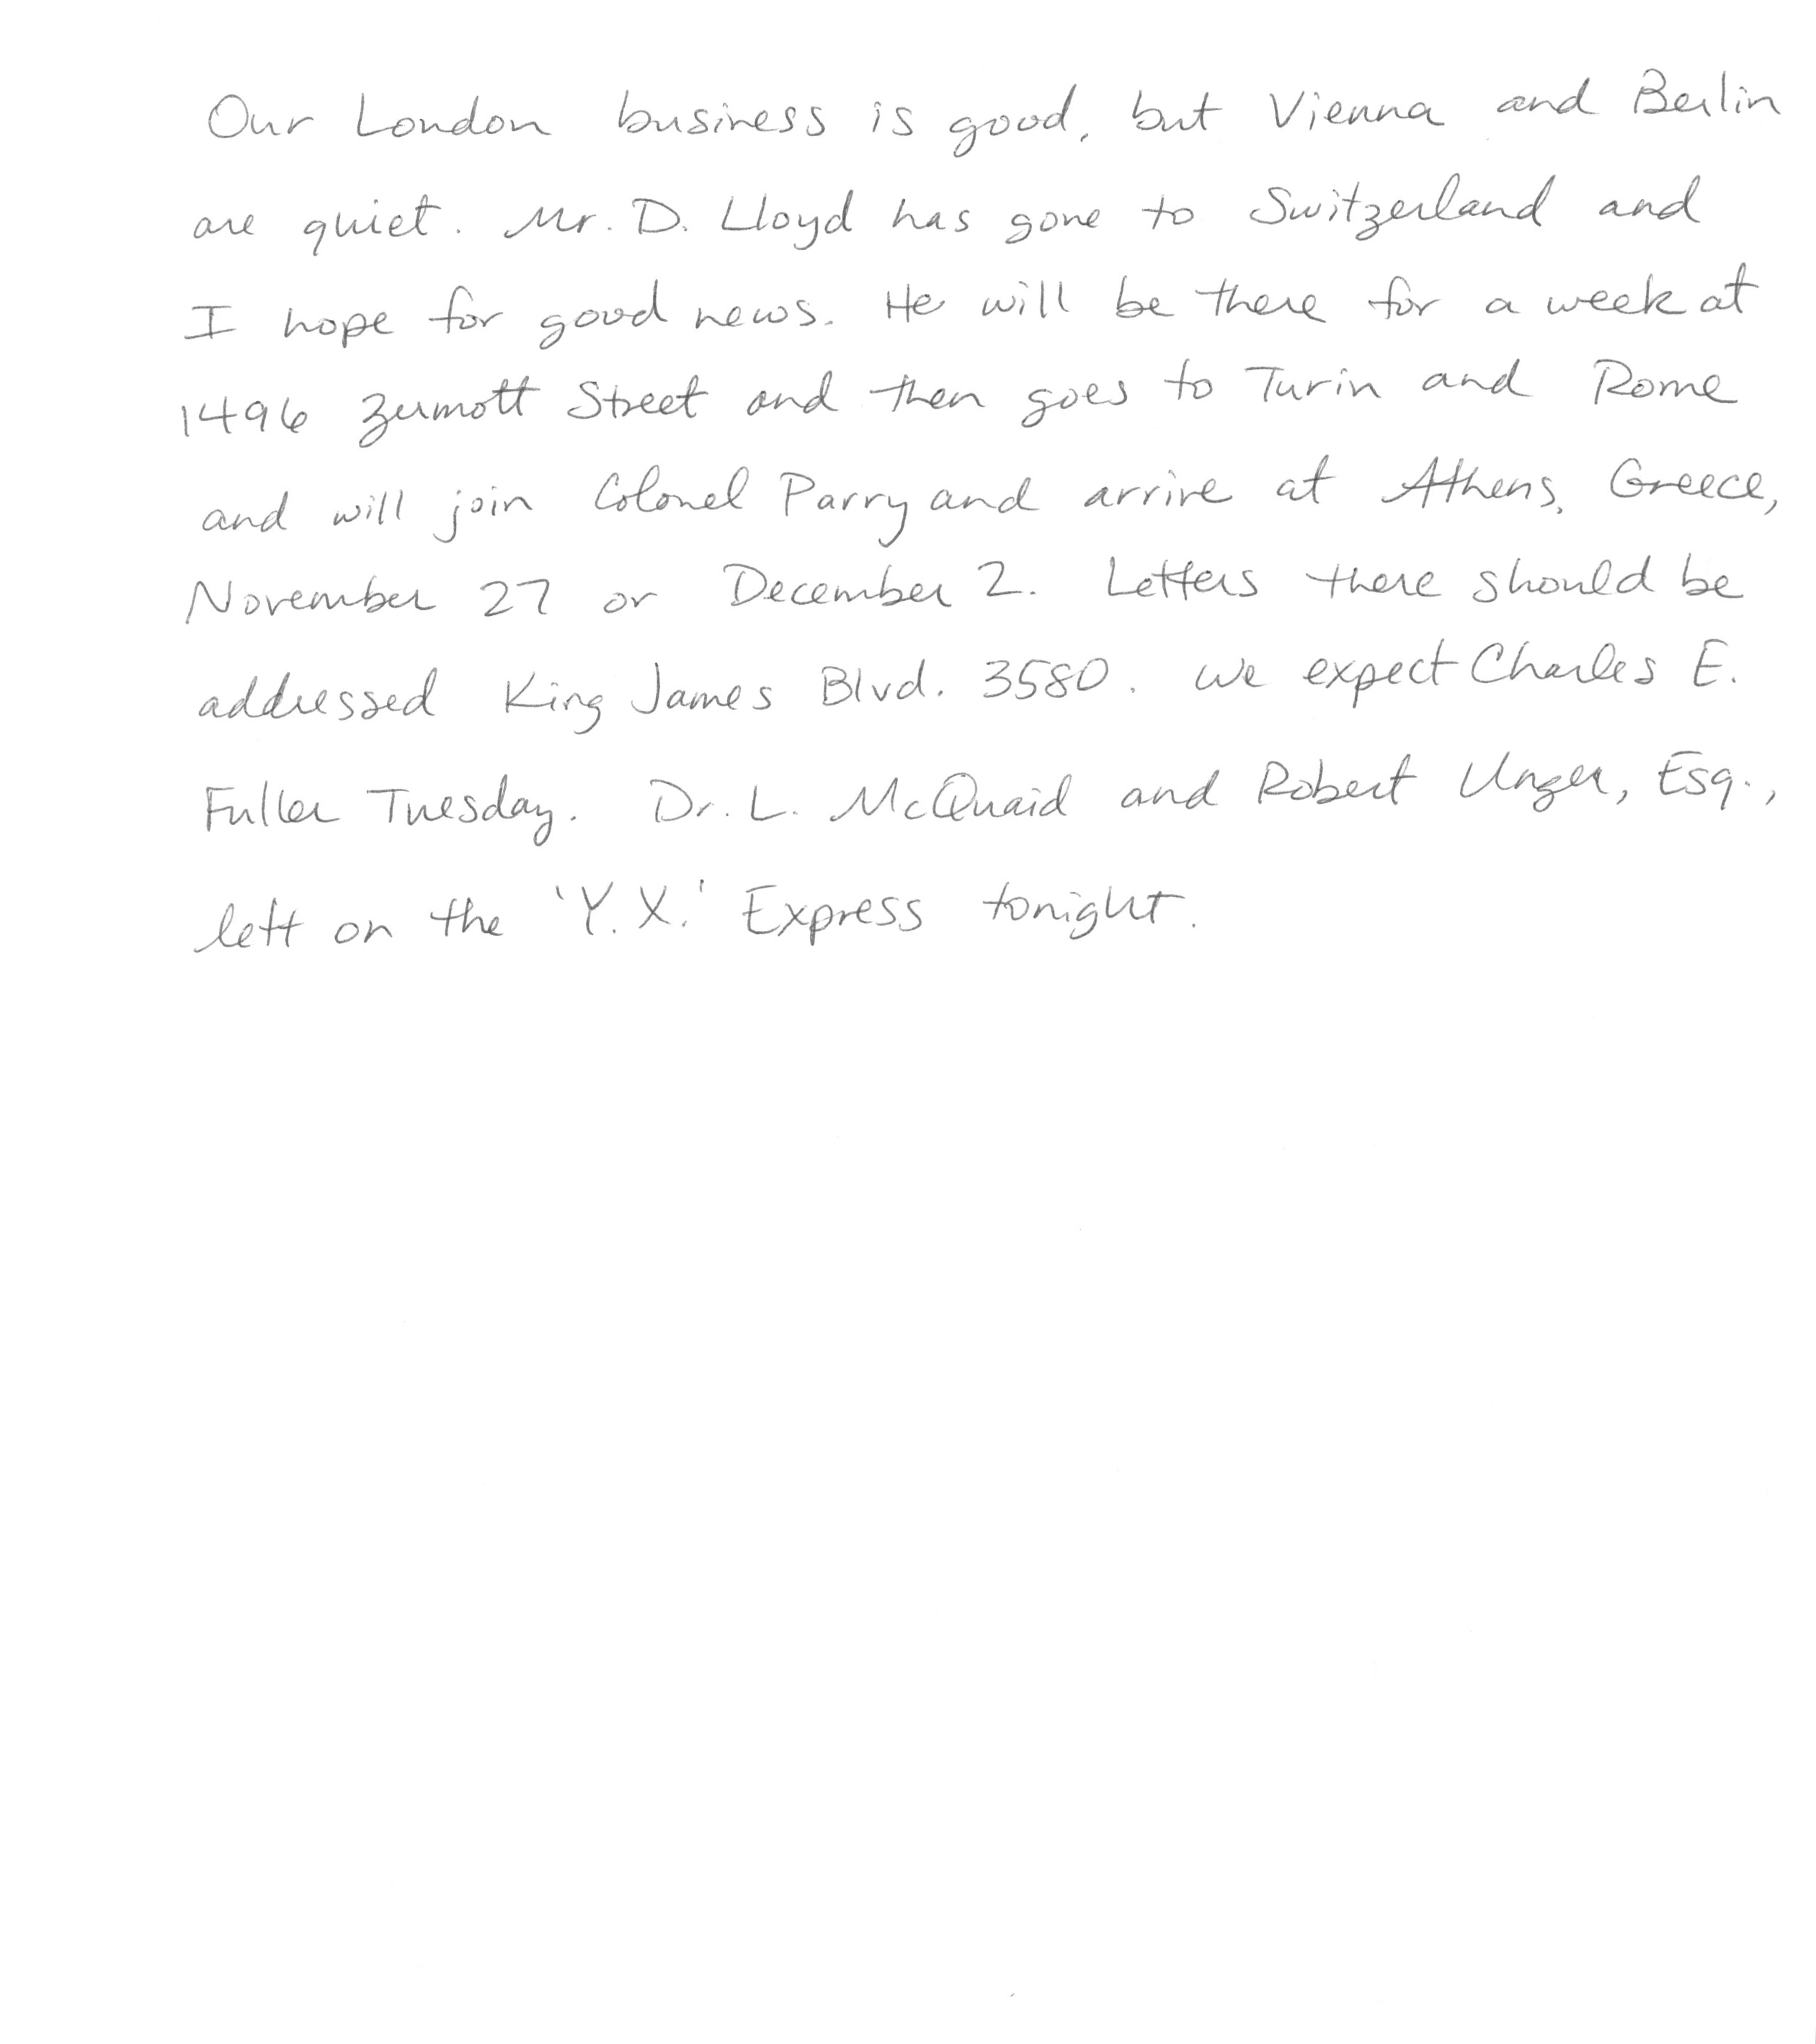 Our London business is good, but Vienna and Berlin
are quiet. Mr. D. Lloyd has gone to Switzerland and
I hope for good news. He will be there for a week at
1496 Zermott Street and then goes to Turin and Rome
and will join Colonel Parry and arrive at Athens, Greece,
November 27 or December 2. Letters there should be
addressed King James Blvd. 3580. We expect Charles E.
Fuller Tuesday. Dr. L. McQuaid and Robert Unger, Esq.,
left on the 'Y.X.' Express tonight.